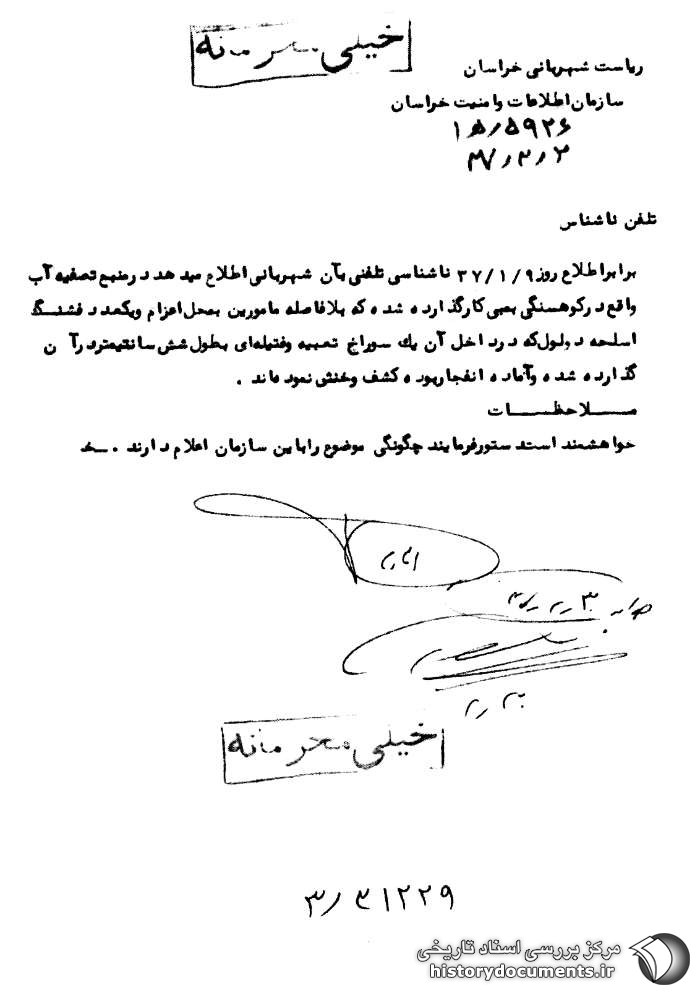 خیلی محرمانه
ریاست شهربانی خراسان
سازمان اطلاعات و امنیت خراسان
۱۵/۵۹۲۶
۳۷/۲/۲
تلفن ناشناس
برابر اطلاع روز ۳۷/۱/۹ ناشناسی تلفنی بآن شهربانی اطلاع میدهد در منبع تصفیه آب
واقع در کوهسنگی بمبی کار گذارده شده که بلافاصله مامورین بمحل اعزام و یکعدد فشنگ
اسلحه دولول که در داخل آن یک سوراخ تعبیه و فتیله‌ای بطول شش سانتیمتر در آن
گذارده شده و آماده انفجار بوده کشف و خنثی نموده‌اند .
ملاحظات
خواهشمند است دستور فرمایند چگونگی موضوع را باین سازمان اعلام دارند .
خیلی محرمانه
۳/۳۱۲۲۹
مرکز بررسی اسناد تاریخی
historydocuments.ir